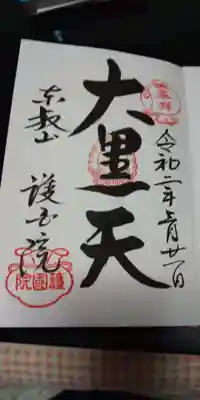 令和二年
月廿一日
大黒天
東叡山
護国院
護國院